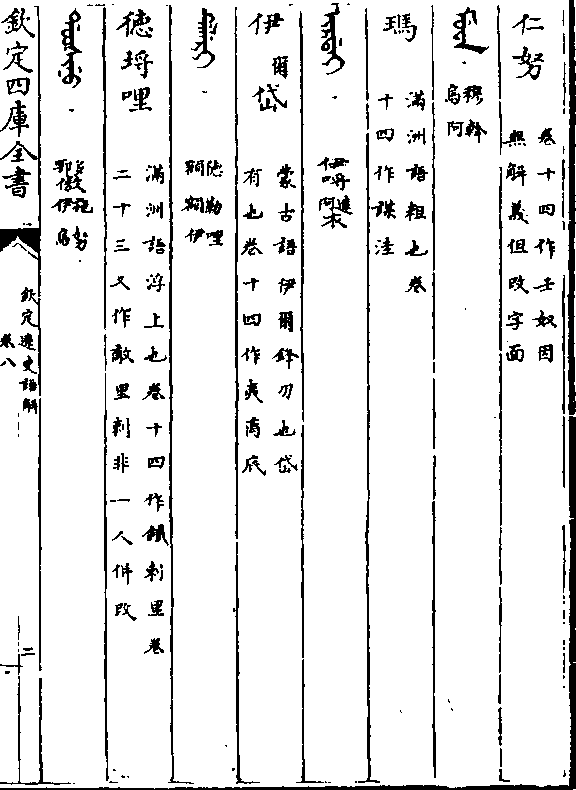 仁努
卷十四作壬奴因
無解義但改字面
穆幹
烏阿
瑪
滿洲語粗也卷
十四作謨洼
伊爾岱
蒙古語伊爾鋒刃也岱
有也卷十四作夷离底
德勒哩
德埒哩
滿洲語浮上也卷十四作鐵剌里卷
二十三又作敵里剌非一人併改
欽定四庫全書
欽定遼史語解
卷八
二